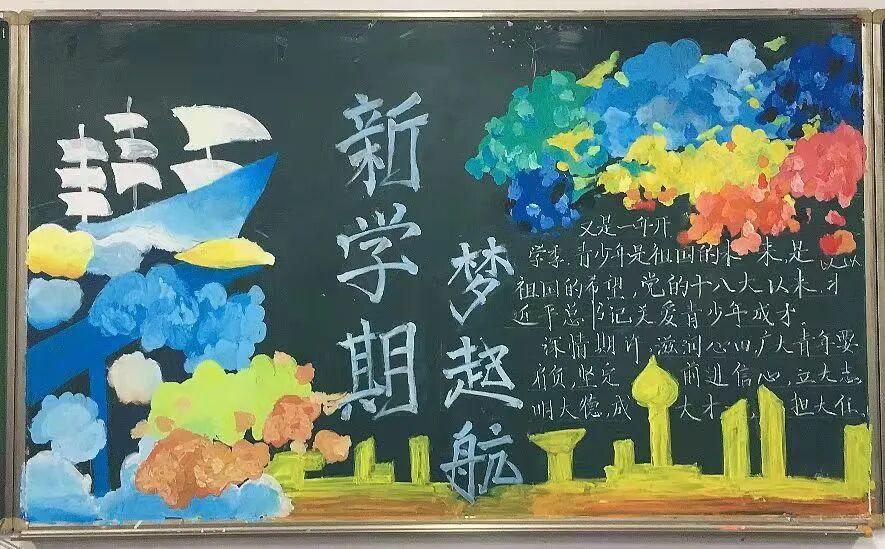 新学期
梦越航
又是一年开
学季,青少年是祖国的未来,是
祖国的希望,党的十八大以来,习
近平总书记关爱青少年成才,
深情期许,滋润心田,广大青年要
肩负,坚定 前进信心,立大志,
明大德,成 大才 担大任,